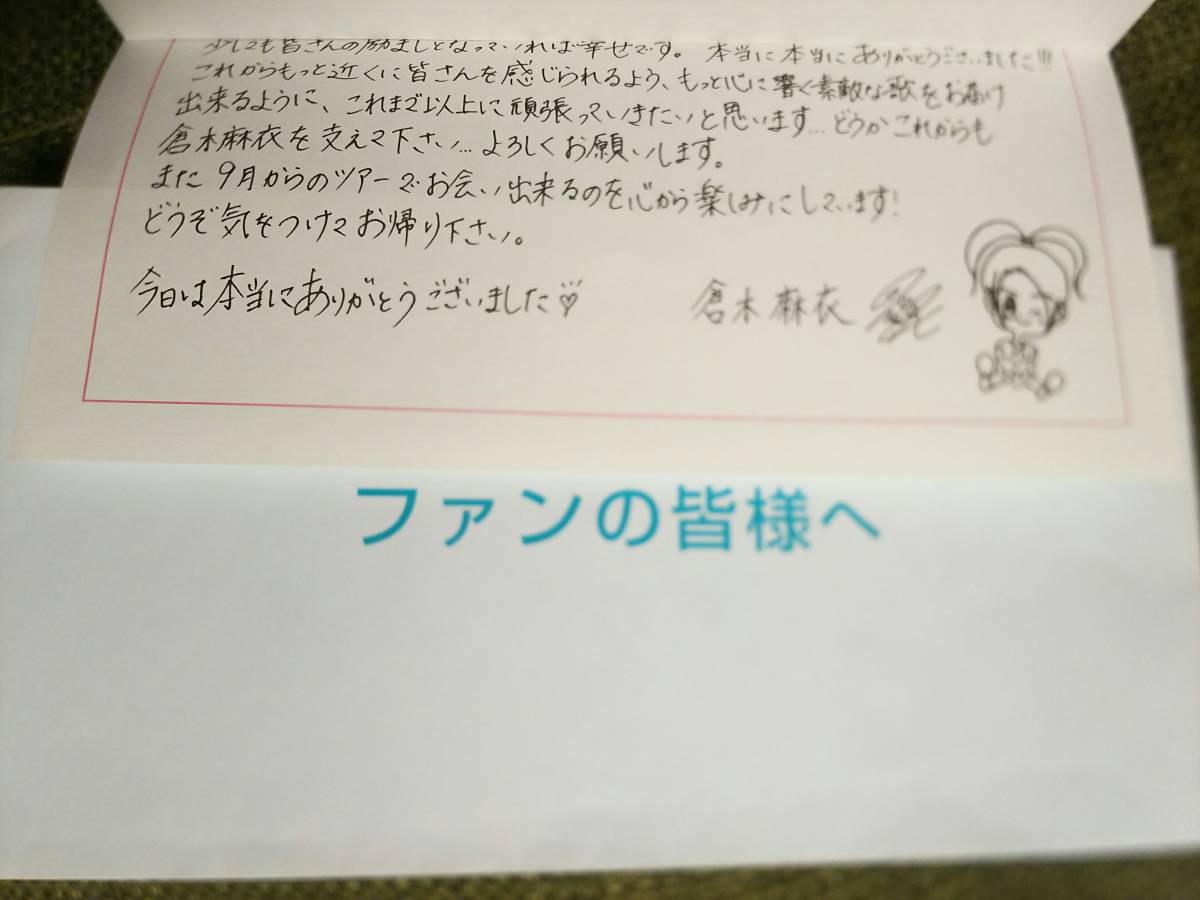 少しでも皆さんの励ましとなっていれば幸せです。 本当に本当にありがとうございました!!!
これからもっと近くに皆さんを感じられるよう、もっと心に響く素敵な歌をお届け
出来るように、これまで以上に頑張っていきたいと思います…どうかこれからも
倉木麻衣を支えて下さい…よろしくお願いします。
また9月からのツアーでお会い出来るのを心から楽しみにしています!
どうぞ気をつけてお帰り下さい。
今日は本当にありがとうございました♡
倉木麻衣
ファンの皆様へ